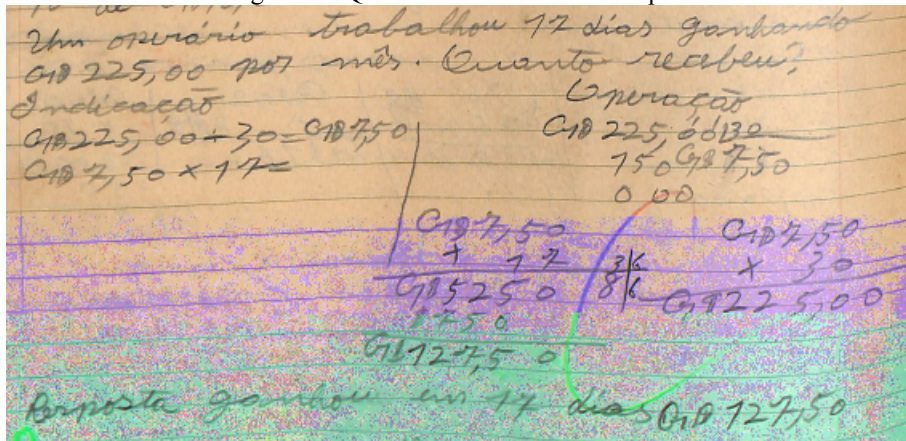 Um operário trabalhou 17 dias ganhando
Cr$ 225,00 por mês. Quanto recebeu?
Indicação
Operação
Cr$225,00÷30=Cr$7,50
Cr$ 7,50 × 17=
Cr$ 225,00|30
150 Cr$ 7,50
0 00
Cr$7,50
× 17
Cr$5250
750
Cr$127,50
3|6
8|6
Cr$7,50
× 30
Cr$225,00
Resposta ganhou em 17 dias Cr$ 127,50